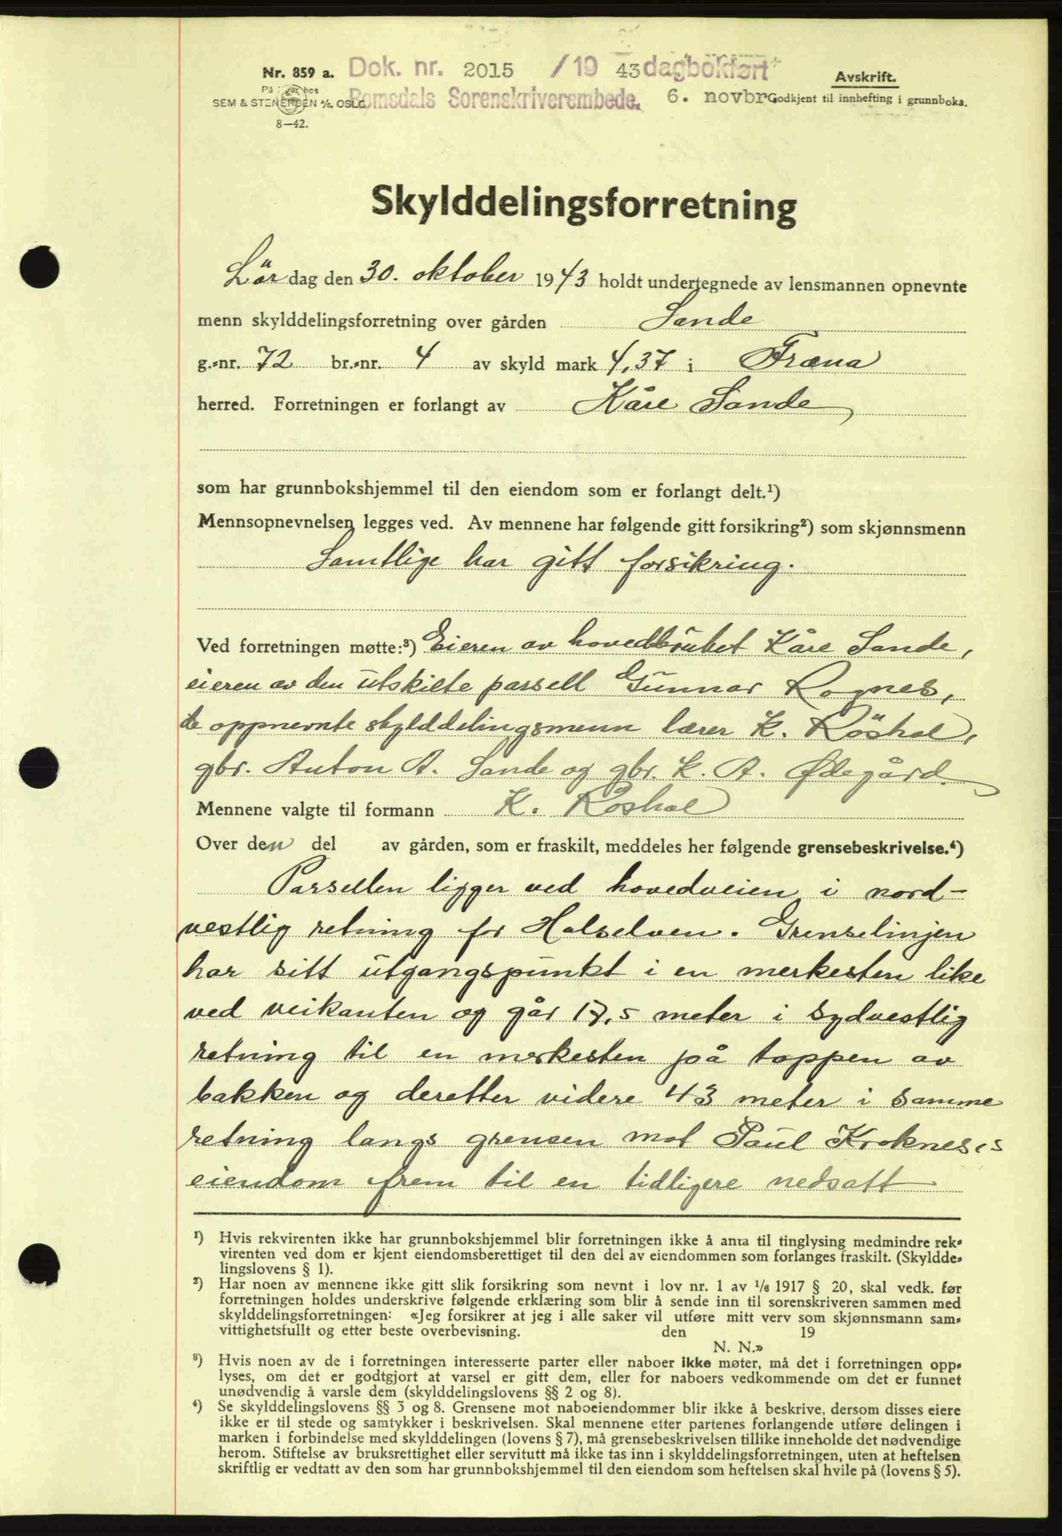 Nr. 859 a. Dok. nr. 2015 /19 43 dagbokført
Avskrift.
På lager hos
SEM & STENERSEN A/S, OSLO. Romsdals Sorenskriverembede. 6. novbr. Godkjent til innhefting i grunnboka.
8—42.
Skylddelingsforretning
Lørdag den 30. oktober 1943 holdt undertegnede av lensmannen opnevnte
menn skylddelingsforretning over gården Sande
g.-nr. 72 br.-nr. 4 av skyld mark 4,37 i Fræna
herred. Forretningen er forlangt av Kåre Sande
som har grunnbokshjemmel til den eiendom som er forlangt delt.¹)
Mennsopnevnelsen legges ved. Av mennene har følgende gitt forsikring²) som skjønnsmenn
Samtlige har gitt forsikring.
Ved forretningen møtte:³) Eieren av hovedbruket Kåre Sande,
eieren av den utskilte parsell Gunnar Rognes,
de oppnevnte skylddelingsmenn lærer K. Röshol,
gbr. Anton A. Sande og gbr. K. A. Ødegård.
Mennene valgte til formann K. Röshol
Over den del av gården, som er fraskilt, meddeles her følgende grensebeskrivelse.⁴)
Parsellen ligger ved hovedveien i nord-
vestlig retning for Halselven. Grenselinjen
har sitt utgangspunkt i en merkesten like
ved veikanten og går 17,5 meter i sydvestlig
retning til en merkesten på toppen av
bakken og deretter videre 43 meter i samme
retning langs grensen mot Paul Kroknes,s
eiendom frem til en tidligere nedsatt
¹) Hvis rekvirenten ikke har grunnbokshjemmel blir forretningen ikke å anta til tinglysing medmindre rek-
virenten ved dom er kjent eiendomsberettiget til den del av eiendommen som forlanges fraskilt. (Skyldde-
lingslovens § 1).
²) Har noen av mennene ikke gitt slik forsikring som nevnt i lov nr. 1 av 1/6 1917 § 20, skal vedk. før
forretningen holdes underskrive følgende erklæring som blir å sende inn til sorenskriveren sammen med
skylddelingsforretningen: «Jeg forsikrer at jeg i alle saker vil utføre mitt verv som skjønnsmann sam-
vittighetsfullt og etter beste overbevisning. den 19
N. N.»
³) Hvis noen av de i forretningen interesserte parter eller naboer ikke møter, må det i forretningen opp-
lyses, om det er godtgjort at varsel er gitt dem, eller for naboers vedkommende om det er funnet
unødvendig å varsle dem (skylddelingslovens §§ 2 og 8).
⁴) Se skylddelingslovens §§ 3 og 8. Grensene mot naboeiendommer blir ikke å beskrive, dersom disses eiere
ikke er til stede og samtykker i beskrivelsen. Skal mennene etter partenes forlangende utføre delingen i
marken i forbindelse med skylddelingen (lovens § 7), må grensebeskrivelsen tillike inneholde det nødvendige
herom. Stiftelse av bruksrettighet eller servitutt må ikke tas inn i skylddelingsforretningen, uten at heftelsen
skriftlig er vedtatt av den som har grunnbokshjemmel til den eiendom som heftelsen skal hvile på (lovens § 5).